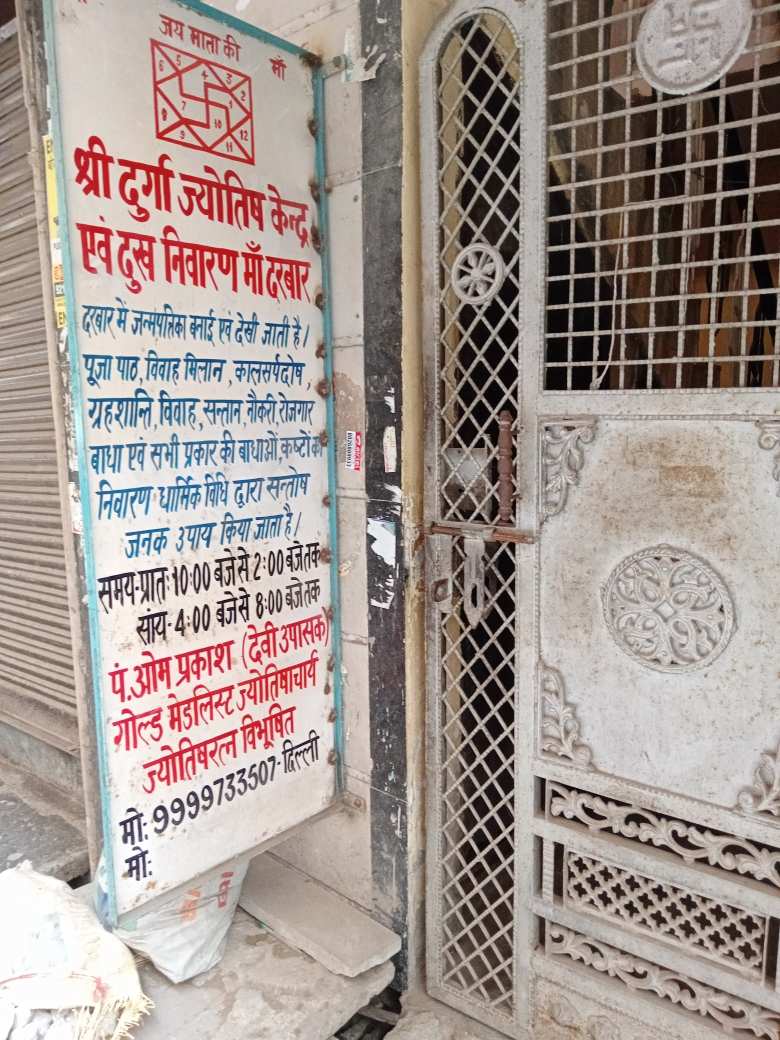 जय माता की
माँ
5 4 3 2
6 1
7 10
8 9 11 12
श्री दुर्गा ज्योतिष केन्द्र
एवं दुख निवारण माँ दरबार
दरबार में जन्मपत्रिका बनाई एवं देखी जाती है।
पूजा पाठ, विवाह मिलान, कालसर्पदोष,
ग्रहशान्ति, विवाह, सन्तान, नौकरी, रोजगार
बाधा एवं सभी प्रकार की बाधाओं, कष्टों का
निवारण धार्मिक विधि द्वारा सन्तोष
जनक उपाय किया जाता है।
समय-प्रातः 10:00 बजे से 2:00 बजे तक
सांय- 4:00 बजे से 8:00 बजे तक
पं. ओम प्रकाश (देवी उपासक)
गोल्ड मेडलिस्ट ज्योतिषाचार्य
ज्योतिषरत्न विभूषित
मो: 9999733507-दिल्ली
मो: